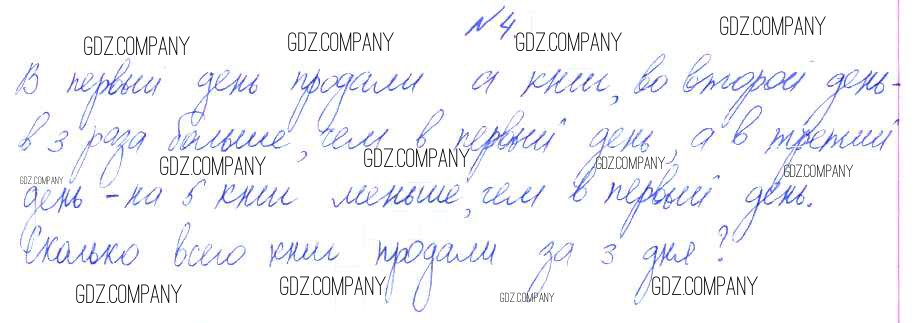 №4.
GDZ.COMPANY GDZ.COMPANY GDZ.COMPANY GDZ.COMPANY
В первый день продали а книг, во второй день-
в 3 раза больше, чем в первый день, а в третий
GDZ.COMPANY GDZ.COMPANY GDZ.COMPANY GDZ.COMPANY GDZ.COMPANY
день - на 5 книг меньше, чем в первый день.
Сколько всего книг продали за 3 дня?
GDZ.COMPANY GDZ.COMPANY GDZ.COMPANY GDZ.COMPANY